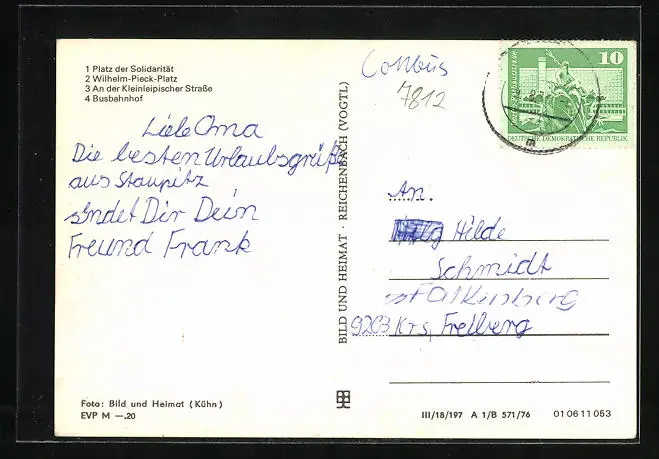 1 Platz der Solidarität
2 Wilhelm-Pieck-Platz
3 An der Kleinleipischer Straße
4 Busbahnhof
Liebe Oma
Die besten Urlaubsgrüße
aus Staupitz
sendet Dir Dein
Freund Frank
Foto: Bild und Heimat (Kühn)
EVP M —.20
BILD UND HEIMAT · REICHENBACH (VOGTL)
Cottbus
7812
10
DEUTSCHE DEMOKRATISCHE REPUBLIK
An.
Hilde
Schmidt
Falkenberg
9203 Krs. Freiberg
III/18/197 A 1/B 571/76 01 06 11 053